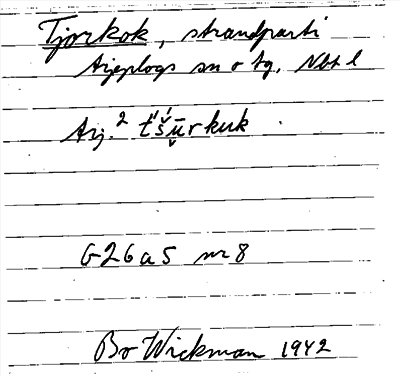 Tjorkok, strandparti
Arjeplogs sn o tg, Nbt l
Arj.² t́š́ūrkuk
G26a5 nr 8
Bo Wickman 1942